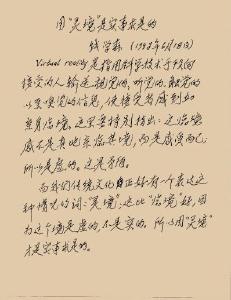 用“灵境”是实事求是的
钱学森（1998年6月18日）
Virtual reality 是指用科学技术手段向
接受的人输送视觉的、听觉的、触觉的
以至嗅觉的信息，使接受者感到如
亲身临境。这里要特别指出：这临境
感不是真地亲临其境，而是感受而已；
所以是虚的。这是矛盾。
而我们传统文化正好有一个表达这
种情况的词：“灵境”，这比“临境”好，因
为这个境是虚的，不是实的。所以用“灵境”
才是实事求是的。